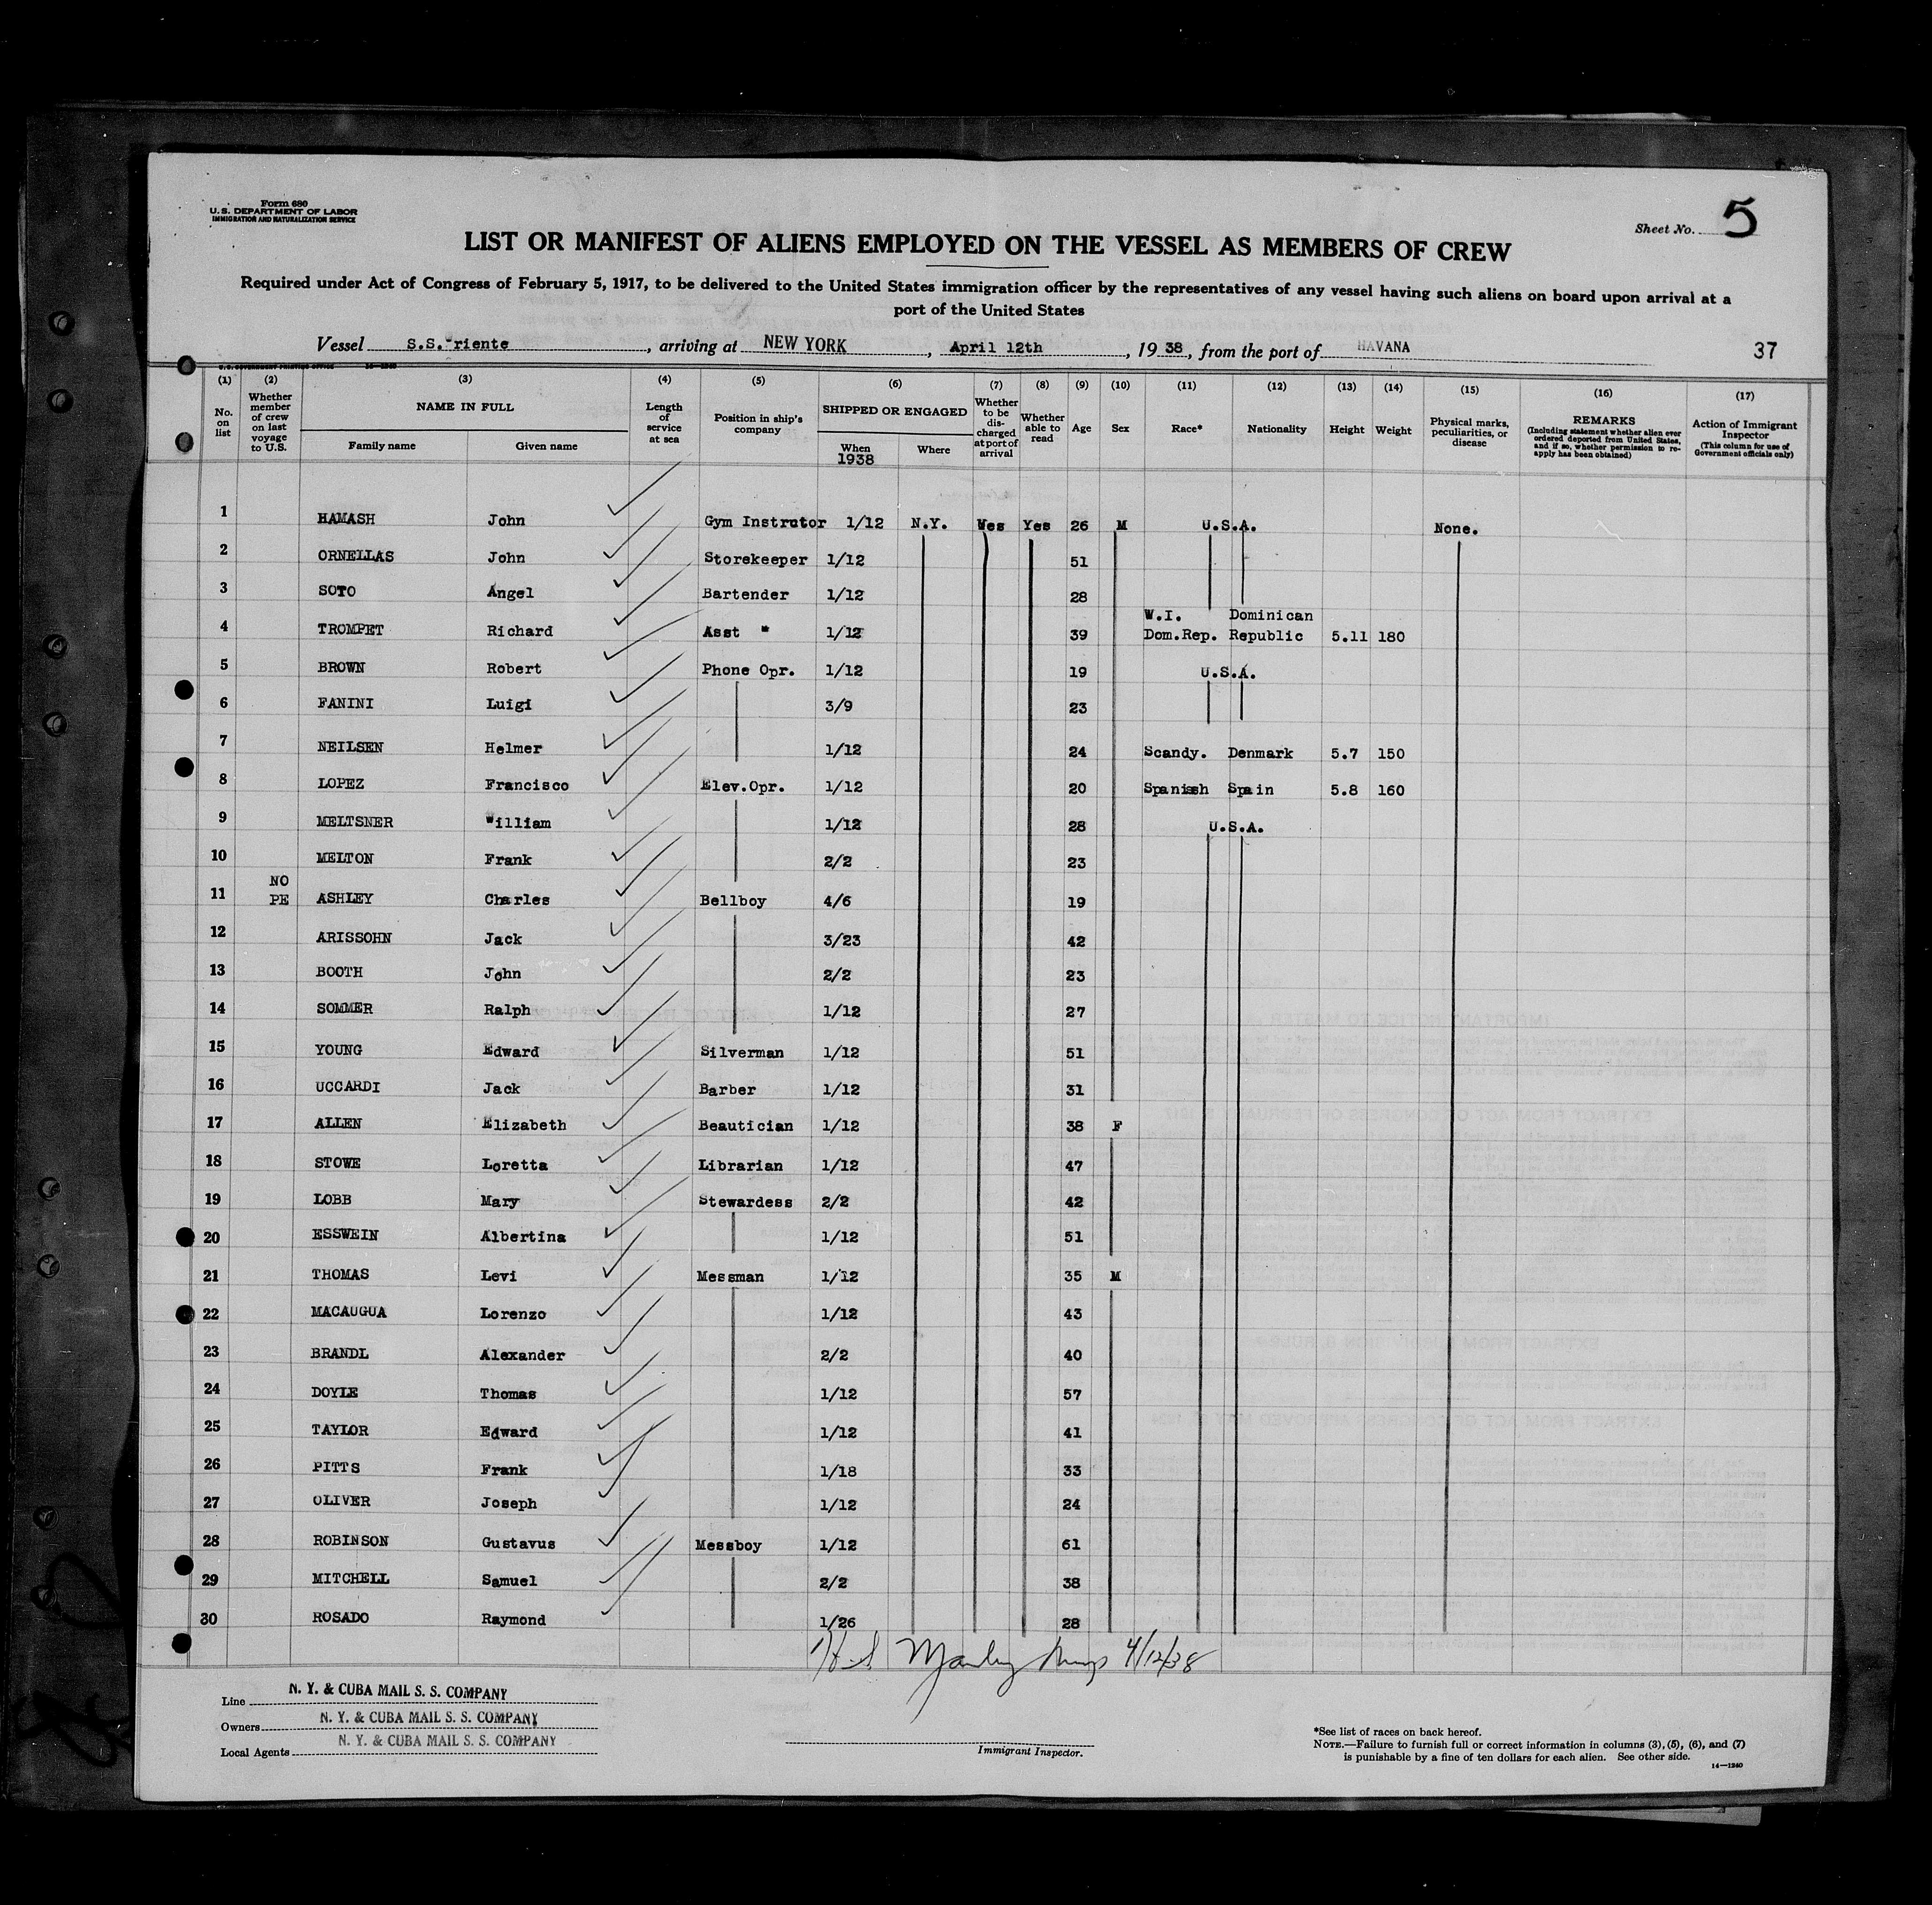 Form 680
U.S. DEPARTMENT OF LABOR
IMMIGRATION AND NATURALIZATION SERVICE
Sheet No. 5
LIST OR MANIFEST OF ALIENS EMPLOYED ON THE VESSEL AS MEMBERS OF CREW
Required under Act of Congress of February 5, 1917, to be delivered to the United States immigration officer by the representatives of any vessel having such aliens on board upon arrival at a
port of the United States
Vessel S.S. riente, arriving at NEW YORK, April 12th, 1938, from the port of HAVANA 37
U.S. GOVERNMENT PRINTING OFFICE
(1) No. on list
(2) Whether member of crew on last voyage to U.S.
(3) NAME IN FULL Family name Given name
(4) Length of service at sea
(5) Position in ship's company
(6) SHIPPED OR ENGAGED When 1938 Where
(7) Whether to be discharged at port of arrival
(8) Whether able to read
(9) Age
(10) Sex
(11) Race*
(12) Nationality
(13) Height
(14) Weight
(15) Physical marks, peculiarities, or disease
(16) REMARKS (Including statement whether alien ever ordered deported from United States, and if so, whether permission to re-apply has been obtained)
(17) Action of Immigrant Inspector (This column for use of Government officials only)
1 HAMASH John Gym Instrutor 1/12 N.Y. Yes Yes 26 M U.S.A. None.
2 ORNELLAS John Storekeeper 1/12 51
3 SOTO Angel Bartender 1/12 28
4 TROMPET Richard Asst " 1/12 39 W.I. Dom.Rep. Dominican Republic 5.11 180
5 BROWN Robert Phone Opr. 1/12 19 U.S.A.
6 FANINI Luigi 3/9 23
7 NEILSEN Helmer 1/12 24 Scandy. Denmark 5.7 150
8 LOPEZ Francisco Elev.Opr. 1/12 20 Spanish Spain 5.8 160
9 MELTSNER William 1/12 28 U.S.A.
10 MELTON Frank 2/2 23
11 NO PE ASHLEY Charles Bellboy 4/6 19
12 ARISSOHN Jack 3/23 42
13 BOOTH John 2/2 23
14 SOMMER Ralph 1/12 27
15 YOUNG Edward Silverman 1/12 51
16 UCCARDI Jack Barber 1/12 31
17 ALLEN Elizabeth Beautician 1/12 38 F
18 STOWE Loretta Librarian 1/12 47
19 LOBB Mary Stewardess 2/2 42
20 ESSWEIN Albertina 1/12 51
21 THOMAS Levi Messman 1/12 35 M
22 MACAUGUA Lorenzo 1/12 43
23 BRANDL Alexander 2/2 40
24 DOYLE Thomas 1/12 57
25 TAYLOR Edward 1/12 41
26 PITTS Frank 1/18 33
27 OLIVER Joseph 1/12 24
28 ROBINSON Gustavus Messboy 1/12 61
29 MITCHELL Samuel 2/2 38
30 ROSADO Raymond 1/26 28
4/12/38
Line N. Y. & CUBA MAIL S. S. COMPANY
Owners N. Y. & CUBA MAIL S. S. COMPANY
Local Agents N. Y. & CUBA MAIL S. S. COMPANY
Immigrant Inspector.
*See list of races on back hereof.
NOTE.—Failure to furnish full or correct information in columns (3), (5), (6), and (7)
is punishable by a fine of ten dollars for each alien. See other side.
14—1240